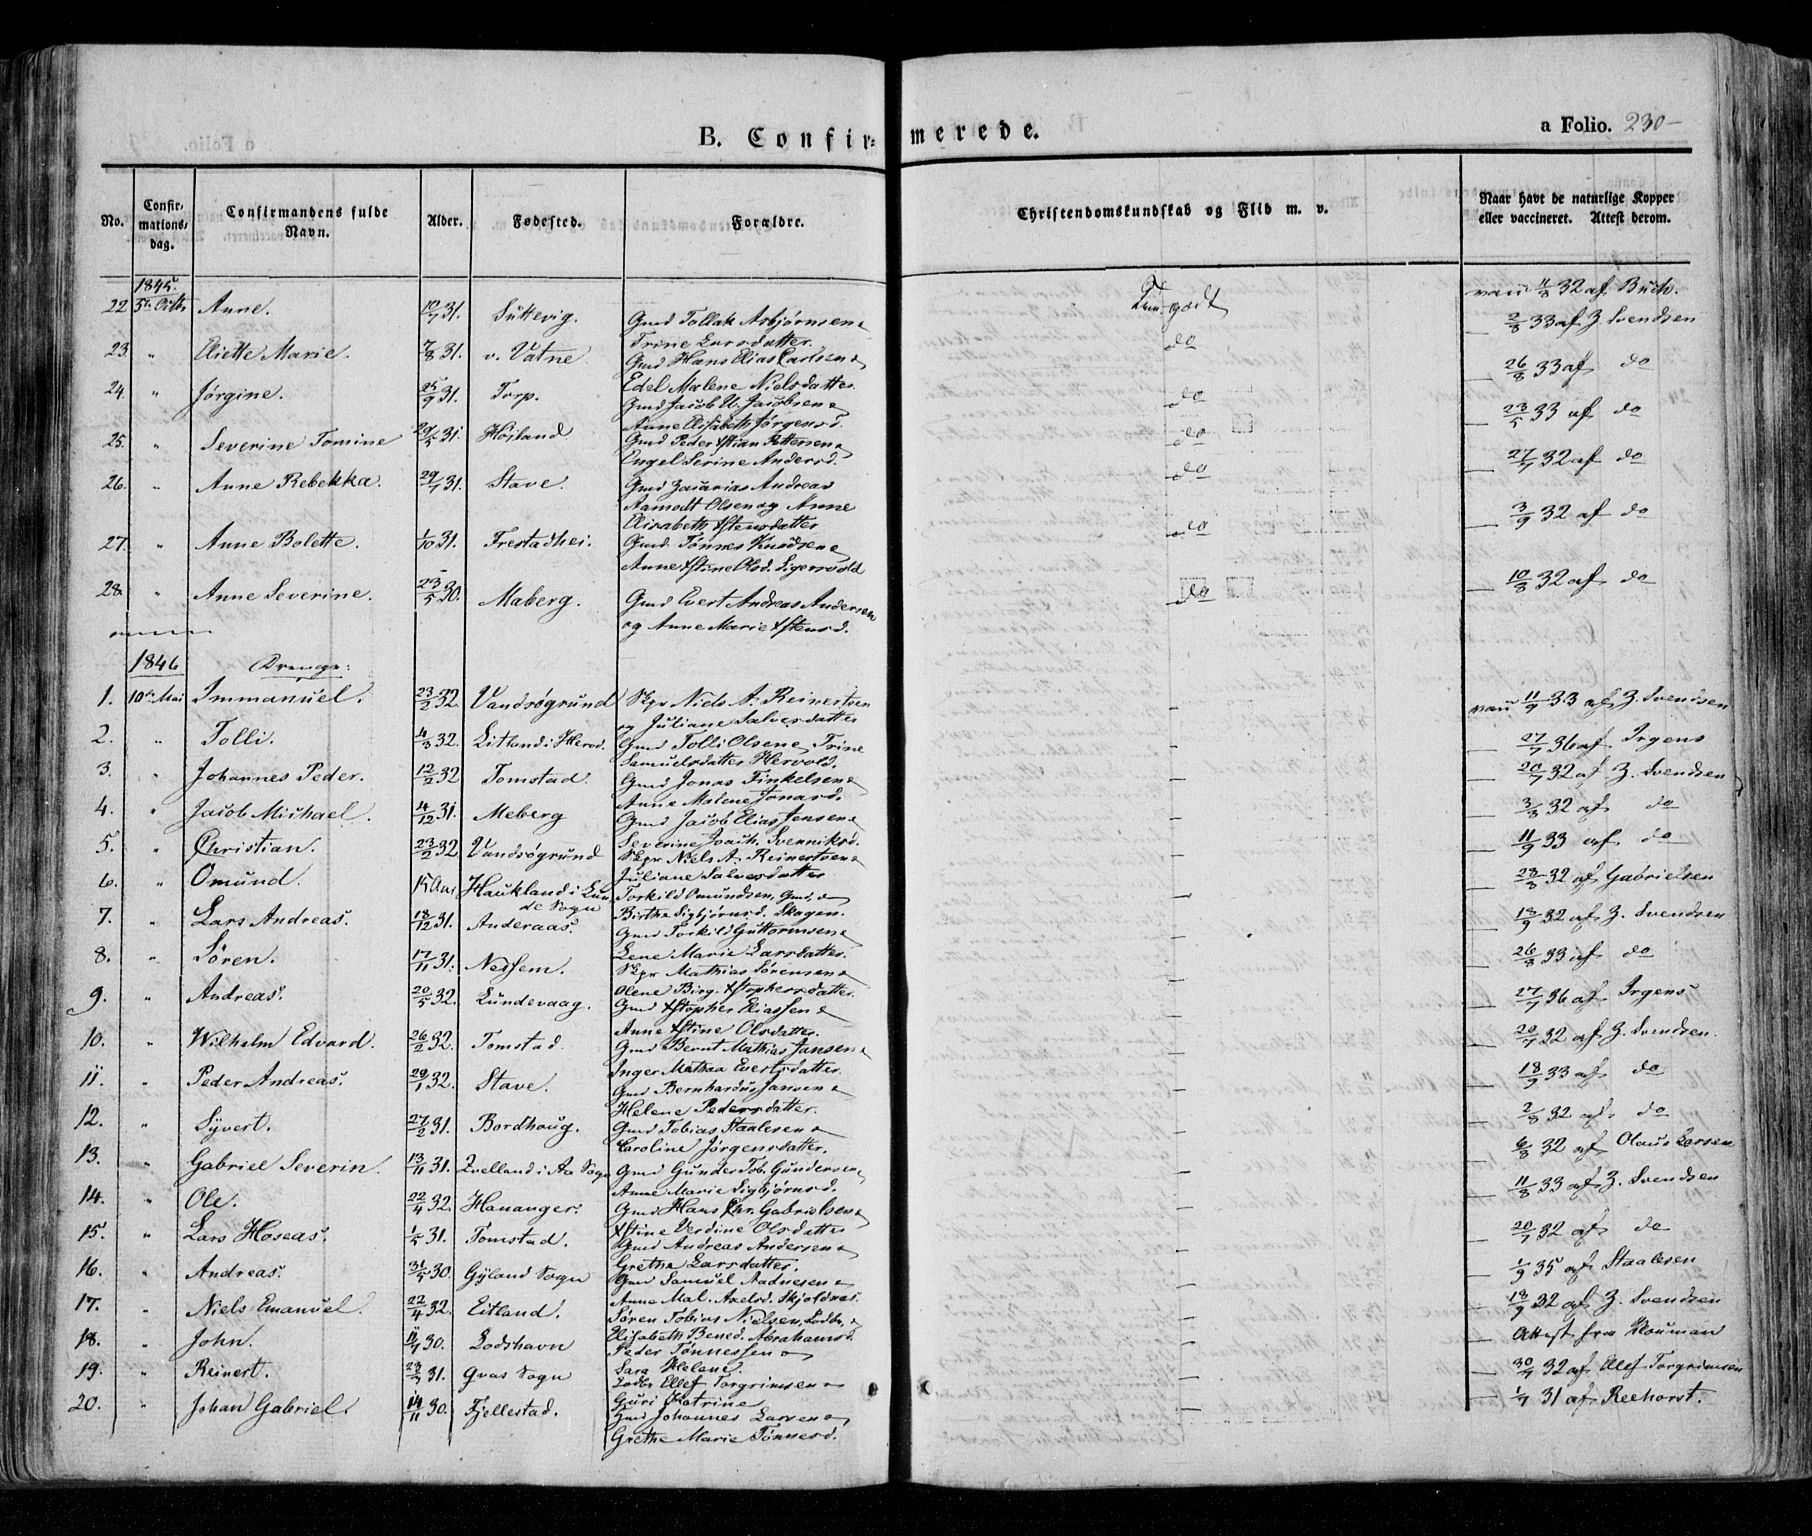 B. Confir- merede.
a Folio. 230-
No. Confir- mations- dag. Confirmandens fulde Navn. Alder. Fødested. Forældre. Christendomskundskab og Flid m. v. Naar havt de naturlige Kopper eller vaccineret. Attest derom.
1845.
22 5te Octb Anne. 10/7 31. Gmd Tollak Asbjørnsen & Trine Larsdatter. godt vacc 11/8 32 af Buch.
23. " Eliette Marie. 7/8 31. v. Vatne Gmd Hans Elias Carlsen & Edel Malene Nielsdatter do 2/8 33 af Z. Svendsen
24. " Jørgine. 25/9 31. Torp. Gmd Jacob U. Jacobsen & Anne Elisabeth Jørgensd. do 26/8 33 af do
25. " Severine Tomine 29/5 31. Høiland Gmd Peder Xstian Pettersen & Engel Serine Andersd. do 23/5 33 af do
26. " Anne Rebekka. 29/7 31. Stave. Gmd Zacarias Andreas Aamodt Olsen og Anne Elisabeth Xstensdatter do 27/7 32 af do
27. " Anne Bolette. 1/10 31. Frestadhei. Gmd. Tønnes Knudsen & Anne Xstine Olsd. Sigersvold do 3/9 32 af do
28. " Anne Severine. 23/5 30. Maberg. Gmd Evert Andreas Andersen og Anne Marie Xstensd. do 10/8 32 af do
1846 Drenge:
1. 10de Mai Immanuel. 23/2 32. Vandsøgrund Skpr Niels A. Reinertsen og Juliane Salvesdatter - vacc 11/9 33 af Z. Svendsen
2. " Tolli. 4/3 32. Eitland i Herod. Gmd Tolli Olsen & Trine Samuelsdatter Hervold. - 27/7 36 af Irgens
3. " Johannes Peder. 12/2 32 Tomstad. Gmd Jonas Tinkelsen & Anne Malene Jonasd. - 20/7 32 af Z. Svendsen
4. " Jacob Michael. 4/12 31. Meberg Gmd Jacob Elias Jensen & Severine Joach. Svenniksd. - 3/8 32 af do
5. " Christian. 23/2 32 Vandsøgrund Skpr Niels A. Reinertsen & Juliane Salvesdatter - 11/9 33 af do
6. " Omund. 15 Aar Haukland i Lunde Sogn Torkild Omundsen, Gmd, & Birthe Sigbjørnsd. Skogen. - 28/8 32 af Gabrielsen
7. " Lars Andreas. 18/12 31. Anderaas. Gmd Torkild Guttormsen & Lene Marie Larsdatter. - 18/9 32 af Z. Svendsen
8. " Søren. 17/11 31. Nessem. Skpr Mathias Sørensen & Olene Birg. Xstophersdatter. - 26/8 33 af do
9. " Andreas. 20/5 32. Lundevaag. Gmd Xstopher Eliassen & Anne Xstine Olsdatter. - 27/7 36 af Irgens
10. " Wilhelm Edvard. 26/2 32. Tomstad. Gmd Bernt Mathias Jansen & Inger Mathea Evertsdatter. - 20/7 32 af Z. Svendsen.
11. " Peder Andreas. 29/1 32. Stave. Gmd Bernhardus Jansen & Helene Pedersdatter. - 18/9 33 af do
12. " Syvert. 27/2 31. Bordhoug. Gmd Tobias Staalesen & Caroline Jørgensdatter. - 2/8 32 af. do
13. " Gabriel Severin. 13/11 31. Qvelland i Aa Sogn Gmd Gunder Tob. Gundersen & Anne Marie Sigbjørnsd. - 6/8 32 af Olaus Larsen
14. " Ole. 22/4 32. Hananger. Gmd Hans Chr. Gabrielsen & Xstine Verdine Olsdatter - 11/8 33 af Z. Svendsen
15. " Lars Hoseas. 1/5 31. Tomstad. Gmd Andreas Andersen & Grethe Larsdatter. - 20/7 32 af do
16. " Andreas. 31/5 30. Gyland Sogn Gmd Samuel Aadnesen & Anne Mal. Axelsd. Skjoldnæs. - 1/9 35 af Staalesen
17. " Niels Emanuel. 22/4 32. Eitland. Søren Tobias Nielsen, Lodbr, & Elisabeth Bened. Abrahamsd. - 18/9 32 af Z. Svendsen
18. " John. 11/7 30. Lodshavn Peder Tønnessen & Sara Helene. - Attest fra Houman
19. " Reinert. 23/3 31. Qvas Sogn Lodbr Ellef Torgrimsen & Guri Katrine - 30/7 32 af Ellef Torgrimsen
20. " Johan Gabriel. 14/11 30. Fjellestad. Gmd Johannes Larsen & Grethe Marie Tønnesd. - 1/7 31 af Reehorst.